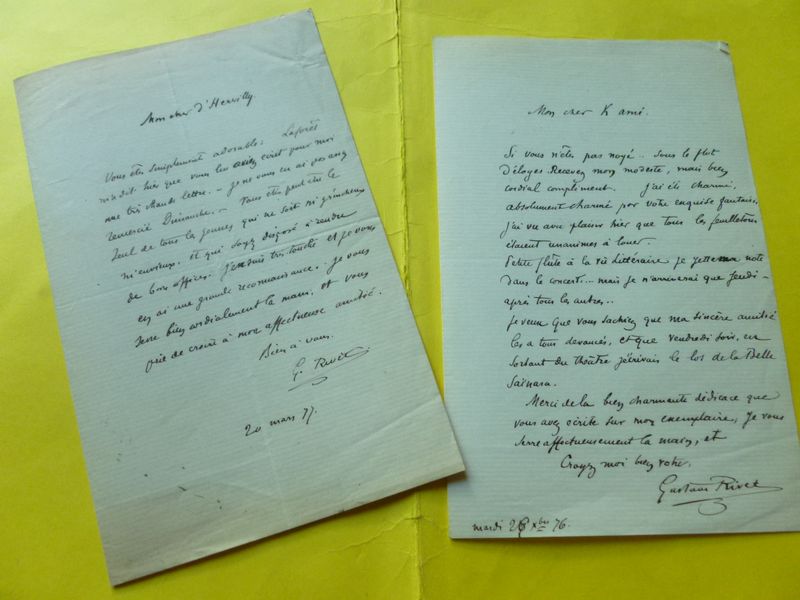 Mon cher d'Hervilly.
Vous êtes simplement adorable: Laforêt
m'a dit hier que vous lui aviez écrit pour moi
une très chaude lettre. - je ne vous en ai pas
remercié Dimanche. - Vous êtes peut être le
seul de tous les jeunes qui ne soit ni grincheux
ni envieux, et qui soyez disposé à rendre
de bons offices. J'en suis très touché et je vous
en ai une grande reconnaissance. je vous
serre bien cordialement la main, et vous
prie de croire à mon affectueuse amitié.
Bien à vous.
G. Rivet
20 mars 77.
Mon cher K ami.
Si vous n'êtes pas noyé.. sous le flot
d'éloges. Recevez mon modeste, mais bien
cordial compliment. j'ai été charmé,
absolument charmé par votre exquise fantaisie,
j'ai vu avec plaisir hier que tous les feuilletons
étaient unanimes à louer.
Petite flûte à la Vie Littéraire je jette ma note
dans le concert... mais je n'arriverai que Jeudi -
après tous les autres..
je veux que vous sachiez que ma sincère amitié
les a tous devancés, et que vendredi soir, en
sortant du théâtre j'écrivais le los de la Belle
Saïnara.
Merci de la bien charmante dédicace que
vous avez écrite sur mon exemplaire, Je vous
serre affectueusement la main, et
Croyez moi bien votre.
Gustave Rivet
mardi 26 xbre 76.